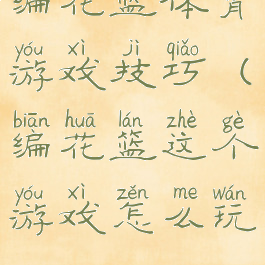 编花篮体育
yóu xì jì qiǎo
游戏技巧（
biān huā lán zhè gè
编花篮这个
yóu xì zěn me wán
游戏怎么玩